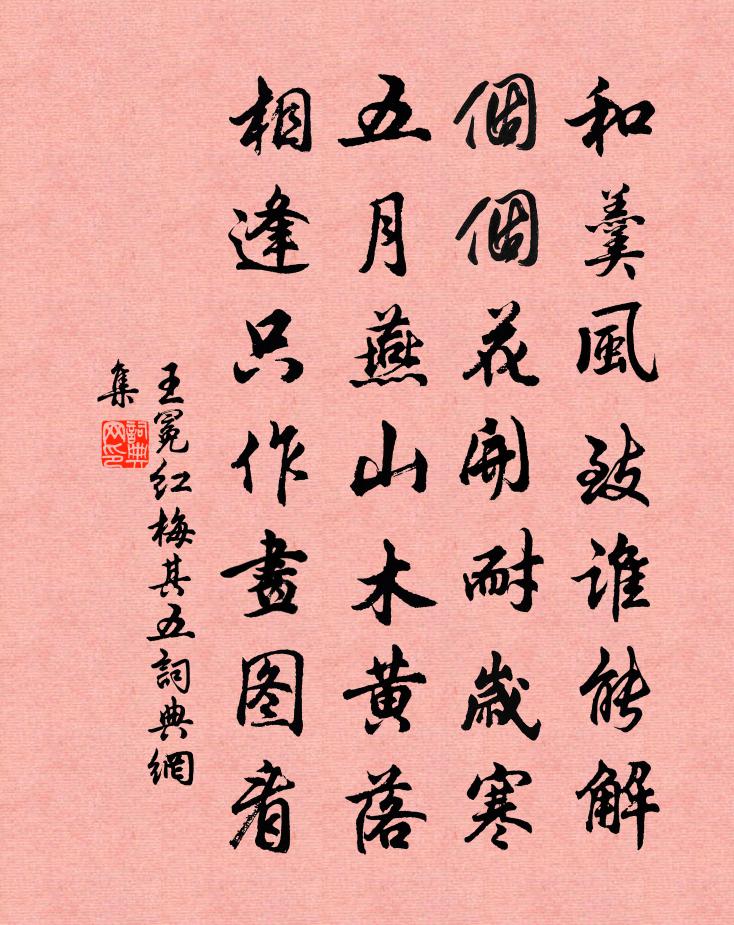 和羹風致誰能解
個個花開耐歲寒
五月燕山木黄落
相逢只作畫图看
王冕红梅其五詞典網
集
詞典
网印